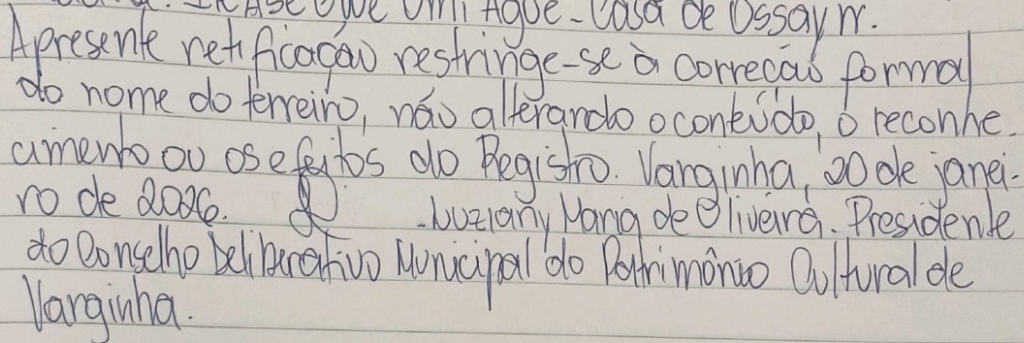 ILÊ ASÉ EWE OMI AGUE - Casa de Ossayn.
Apresente retificação restringe-se à correção formal
do nome do terreiro, não alterando o conteúdo, o reconhe-
cimento ou os efeitos do Registro. Varginha, 20 de janei-
ro de 2026. Luziany Maria de Oliveira. Presidente
do Conselho Deliberativo Municipal do Patrimônio Cultural de
Varginha.